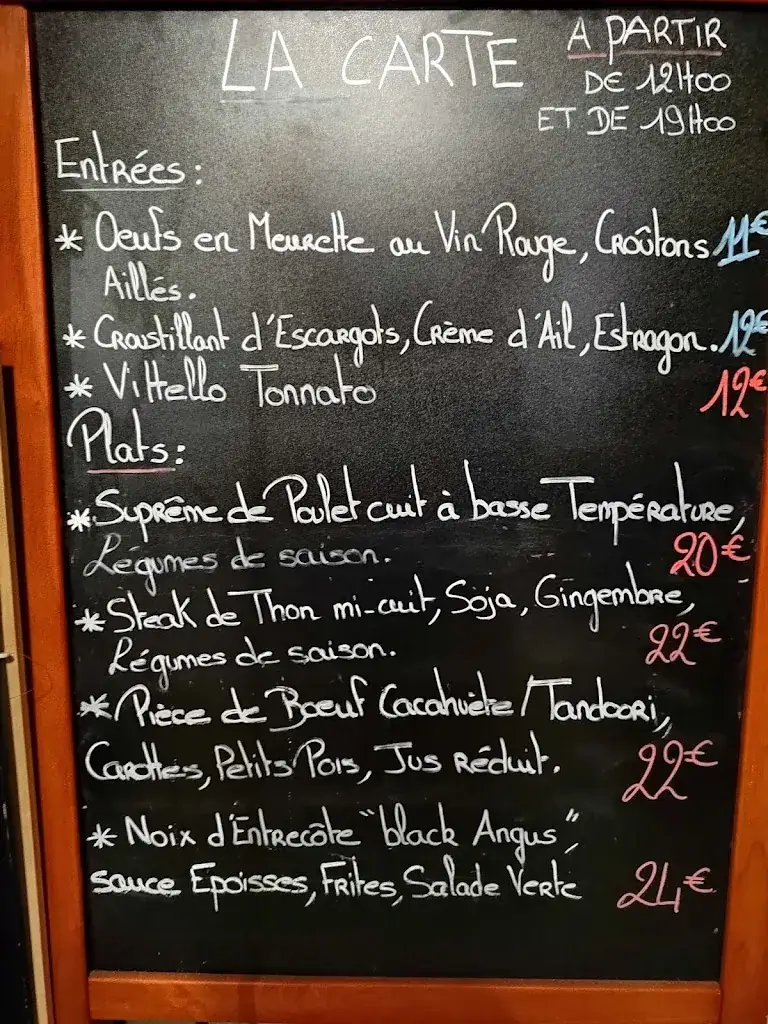 LA CARTE
A PARTIR
DE 12H00
ET DE 19H00
Entrées :
* Oeufs en Meurette au Vin Rouge, Croûtons 11€
Aillés.
* Croustillant d'Escargots, Crème d'Ail, Estragon. 12€
* Vittello Tonnato 12€
Plats :
* Suprême de Poulet cuit à basse Température,
Légumes de saison. 20€
* Steak de Thon mi-cuit, Soja, Gingembre,
Légumes de saison. 22€
* Pièce de Boeuf Cacahuète / Tandoori,
Carottes, Petits Pois, Jus Réduit. 22€
* Noix d'Entrecôte "black Angus",
sauce Epoisses, Frites, Salade Verte 24€